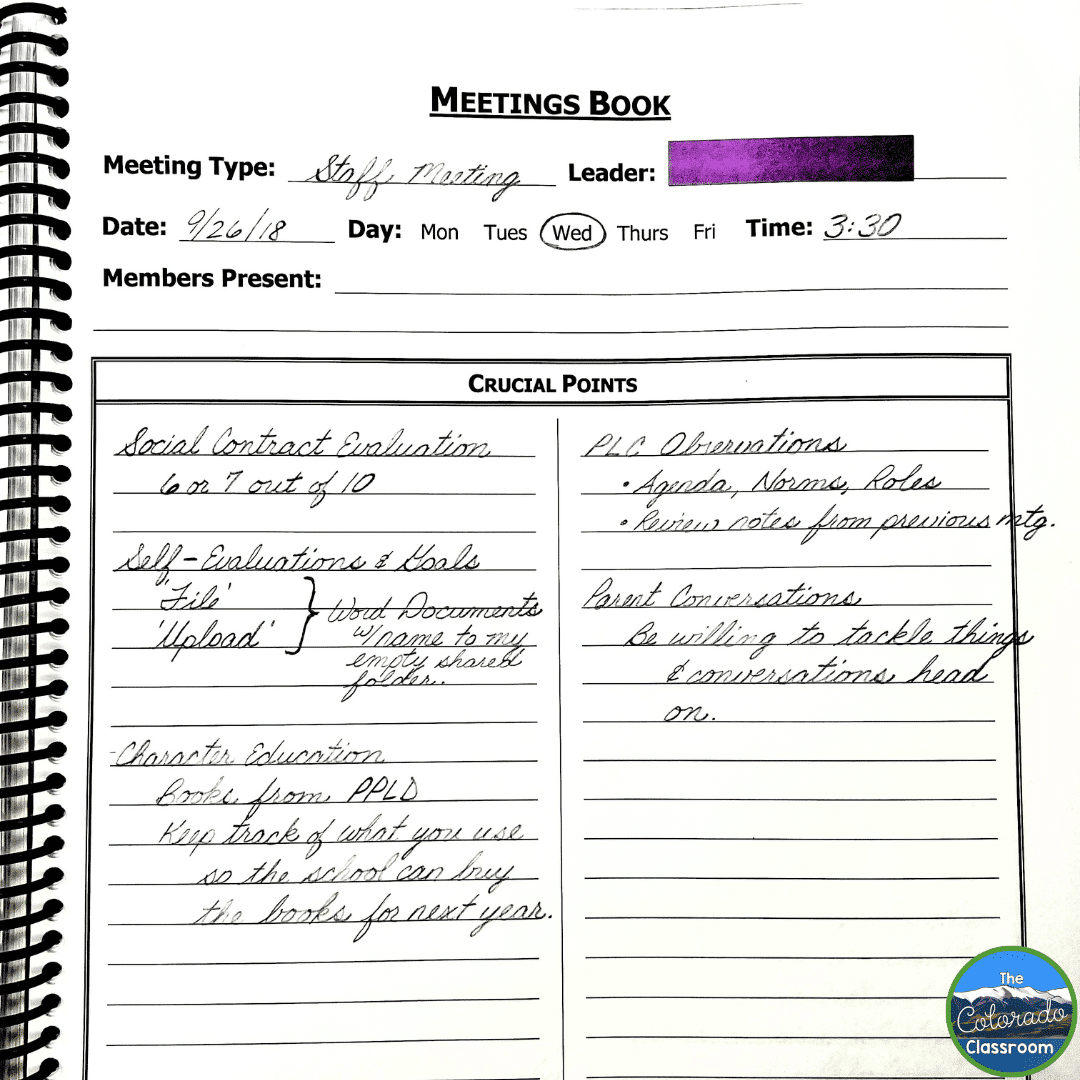 MEETINGS BOOK
Meeting Type: Staff Meeting Leader:
Date: 9/26/18 Day: Mon Tues Wed Thurs Fri Time: 3:30
Members Present:
CRUCIAL POINTS
Social Contract Evaluation
6 or 7 out of 10
Self-Evaluations & Goals
'File'
'Upload' } Word Documents
w/name to my
empty shared
folder..
Character Education
Books from PPLD
Keep track of what you use
so the school can buy
the books for next year.
PLC Observations
• Agenda, Norms, Roles
• Review notes from previous mtg.
Parent Conversations
Be willing to tackle things
& conversations head
on.
The
Colorado
Classroom